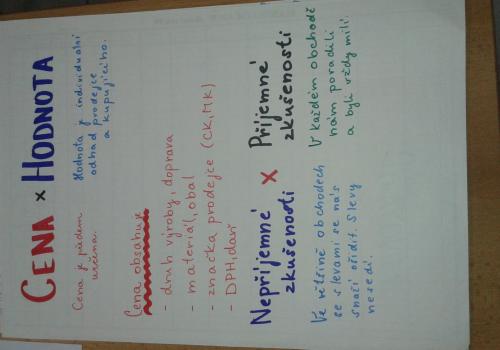 CENA × HODNOTA
Cena je předem
určena.
Hodnota je individuální
odhad prodejce
a kupujícího.
Cena obsahuje
- druh výroby, doprava
- materiál, obal
- značka prodejce (CK, MK)
- DPH, daň
Nepříjemné
zkušenosti
×
Příjemné
zkušenosti
Ve většině obchodech
se slevami se nás
snaží ošidit. Slevy
nesedí.
V každém obchodě
nám poradili
a byli vždy milí.